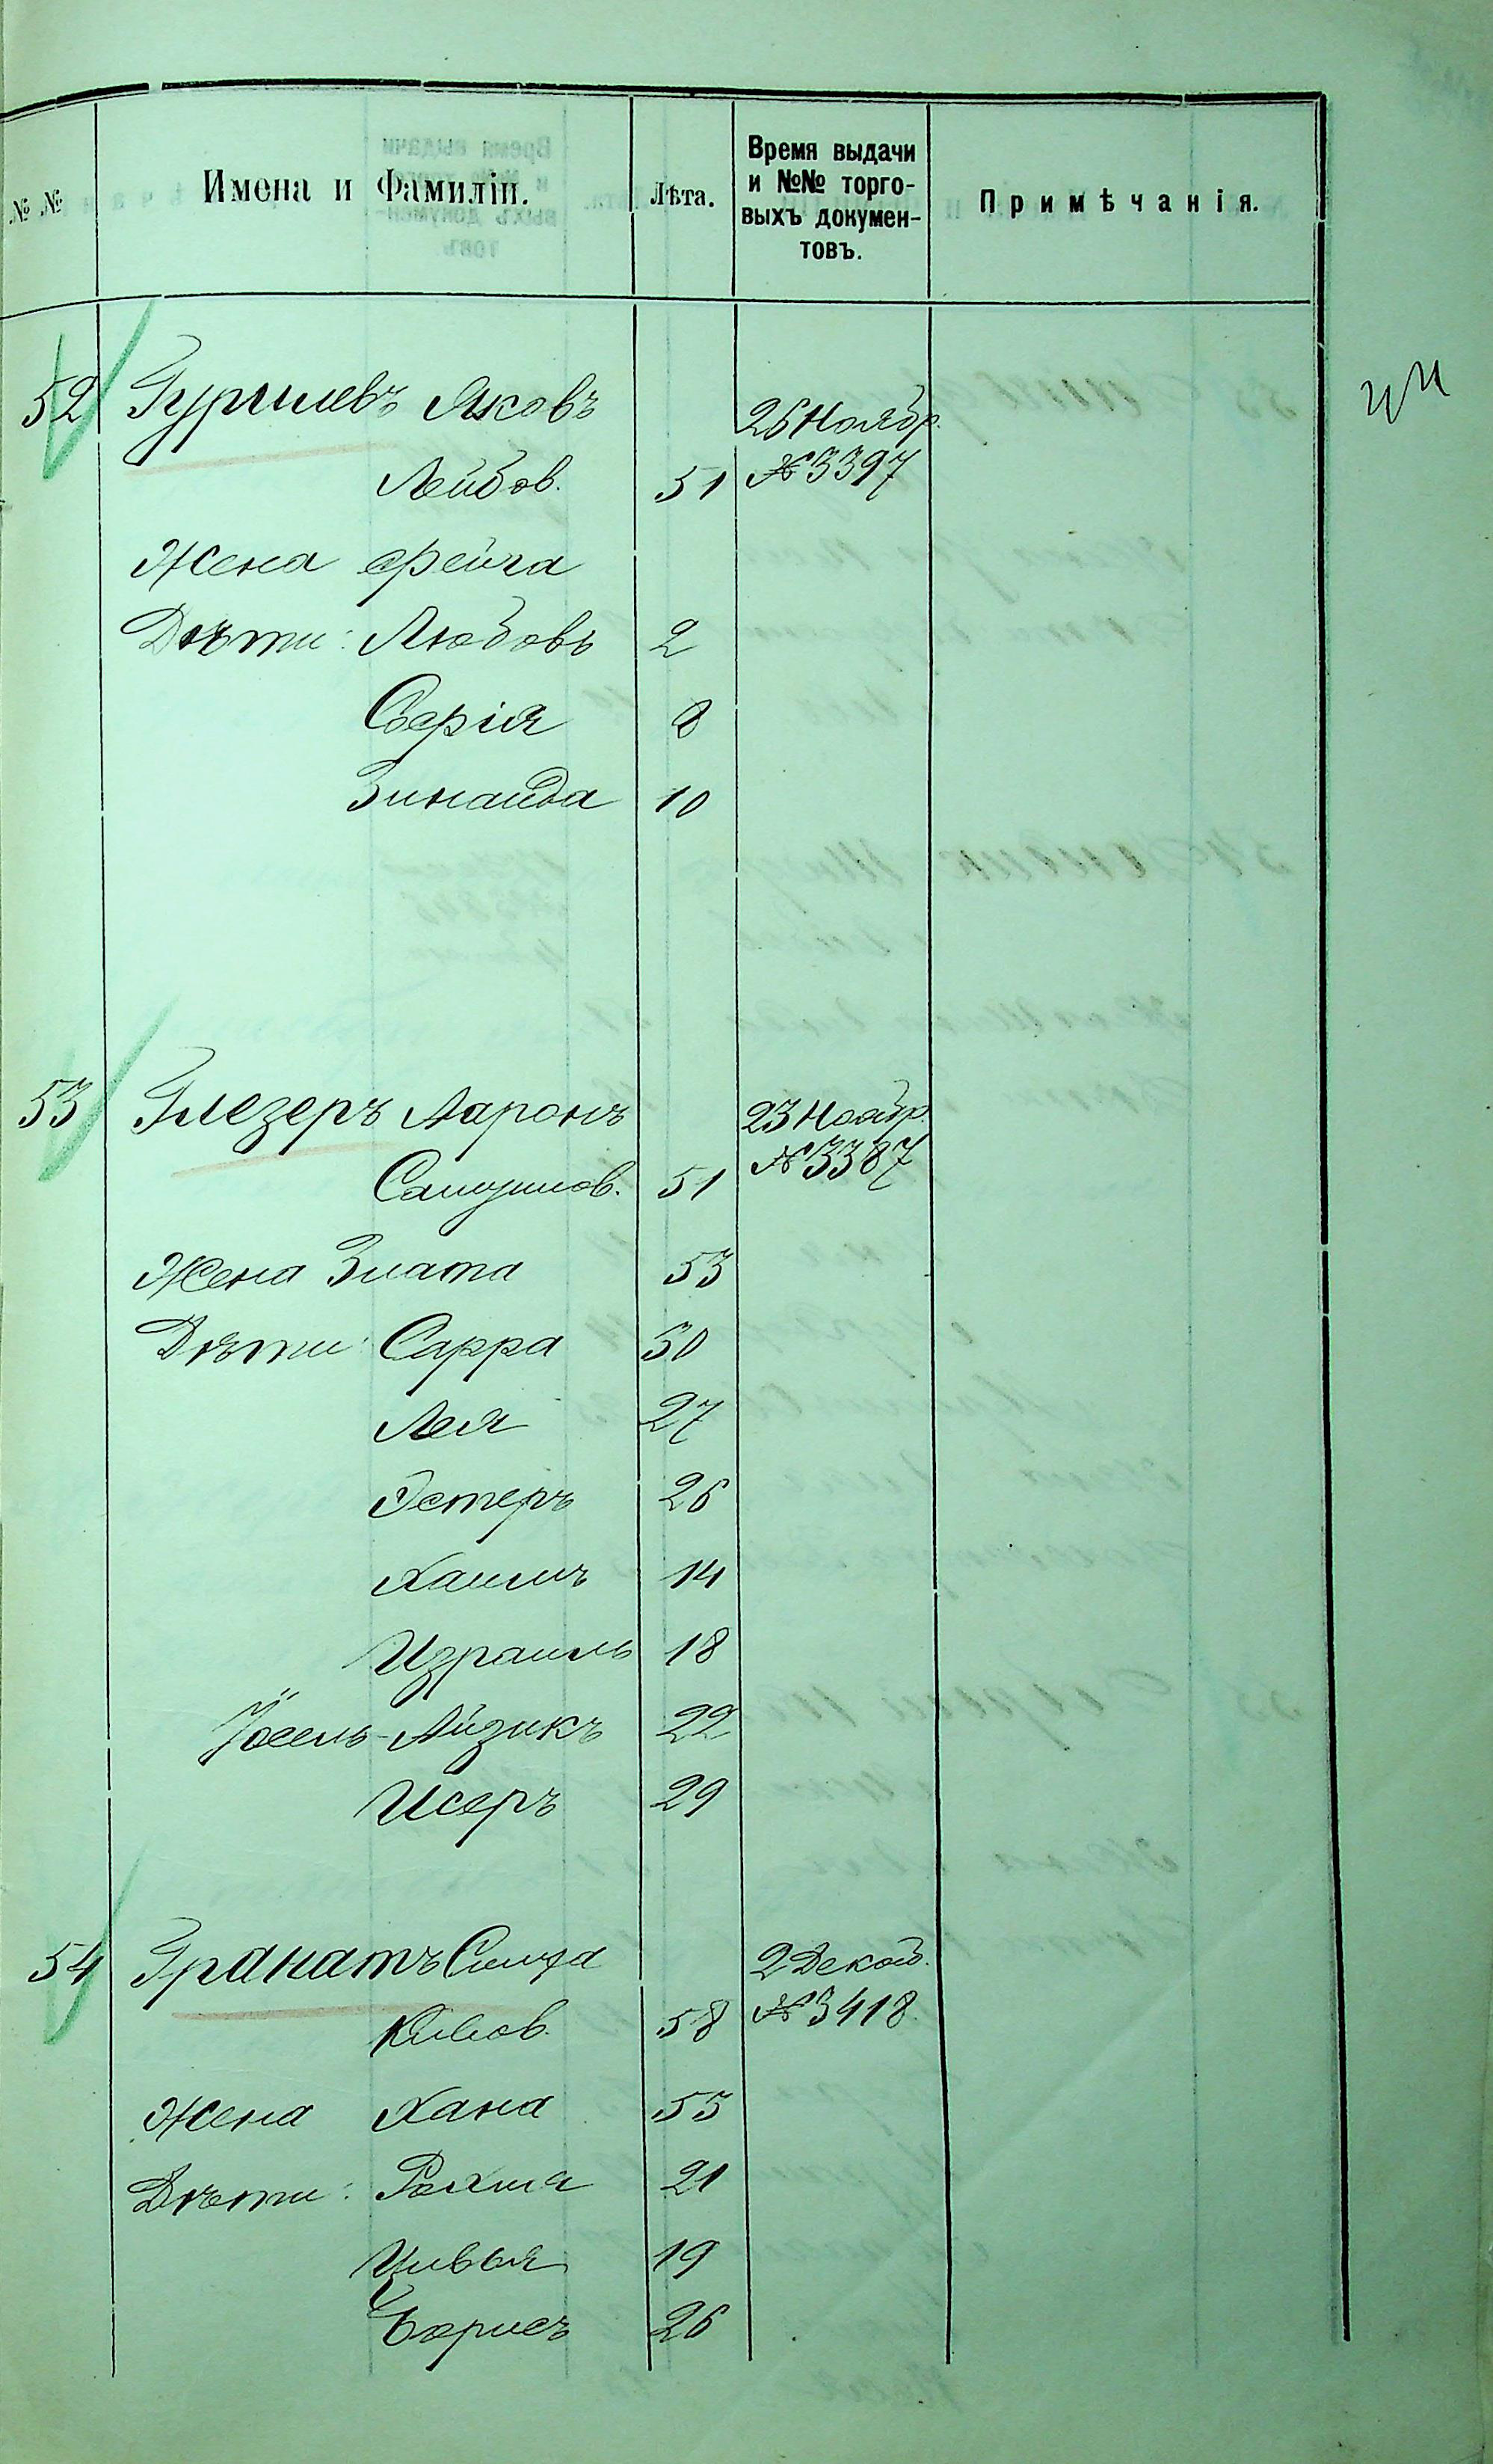 № №
Имена и Фамиліи.
Лѣта.
Время выдачи
и №№ торго-
выхъ докумен-
товъ.
Примѣчанія.
52 Гуршлевъ Яковъ 26 Ноябр.
Лейбов. 51 № 3397
Жена Фейга
Дѣти: Любовь 2
Серія 8
Зинаида 10
53 Глезеръ Ааронъ 23 Ноябр.
Самуилов. 51 № 3387
Жена Злата 53
Дѣти: Сарра 30
Лея 27
Эстеръ 26
Хаимъ 14
Израиль 18
Іосель-Айзикъ 22
Исеръ 29
54 Гранатъ Симха 2 Декаб.
58 № 3418.
Жена Хана 55
Дѣти: Рахиля 21
Цивья 19
Борисъ 26